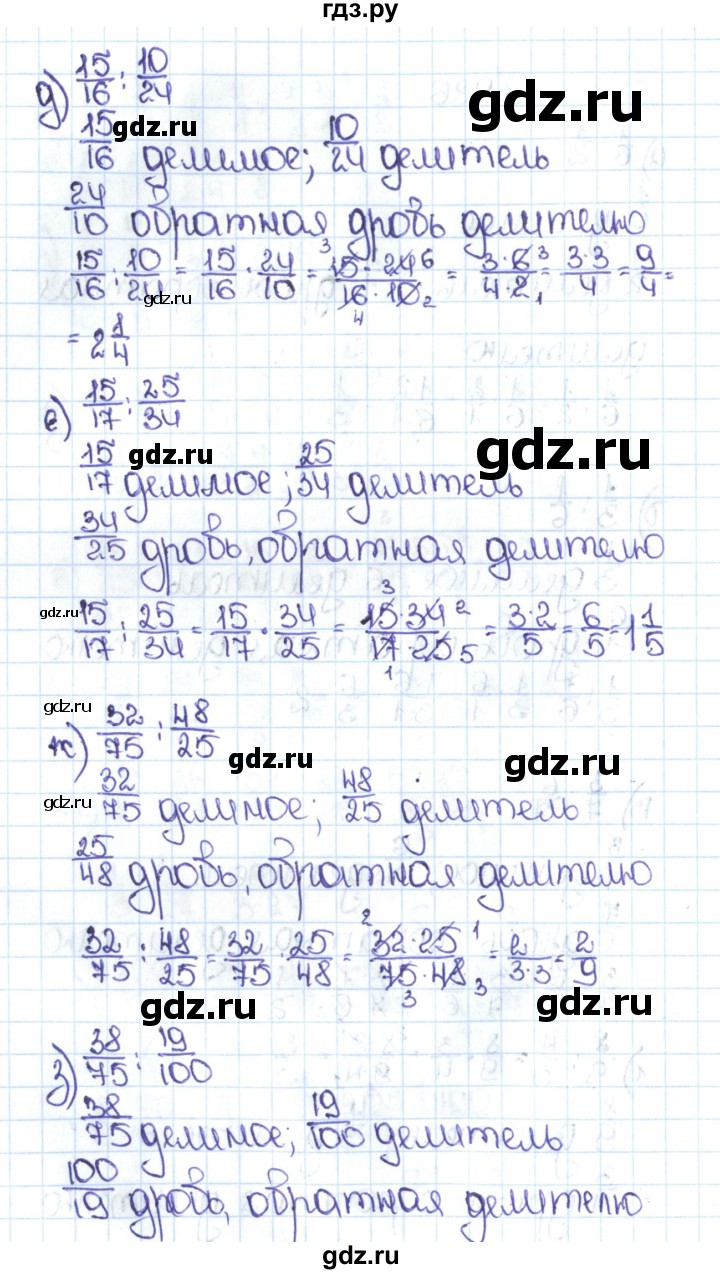 гдз.ру
д) 15/16 : 10/24
gdz.ru
15/16 делимое; 10/24 делитель
gdz.ru
24/10 обратная дробь делителю
15/16 : 10/24 = 15/16 · 24/10 = 15 · 24/16 · 10 = 3·6/4·2 = 3·3/4 = 9/4 =
3 6 4 2 3 1
gdz.ru
= 2 1/4
е) 15/17 : 25/34
gdz.ru
15/17 делимое; 25/34 делитель
gdz.ru
34/25 дробь, обратная делителю
gdz.ru
15/17 : 25/34 = 15/17 · 34/25 = 15·34/17·25 = 3·2/5 = 6/5 = 1 1/5
3 2 1 5
gdz.ru
ж) 32/75 : 48/25
gdz.ru
gdz.ru
32/75 делимое; 48/25 делитель
25/48 дробь, обратная делителю
32/75 : 48/25 = 32/75 · 25/48 = 32·25/75·48 = 2/3·3 = 2/9
2 1 3 3
gdz.ru
gdz.ru
з) 38/75 : 19/100
38/75 делимое; 19/100 делитель
100/19 дробь, обратная делителю
gdz.ru